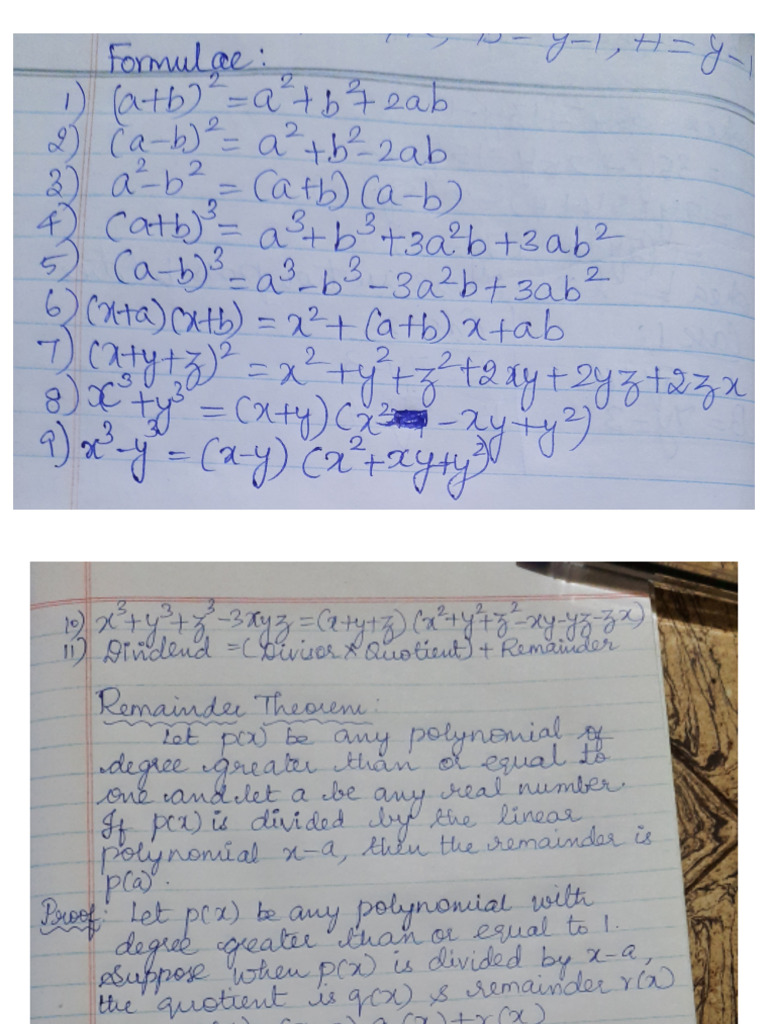 Formulae:
1) (a+b)² = a² + b² + 2ab
2) (a-b)² = a² + b² - 2ab
3) a² - b² = (a+b) (a-b)
4) (a+b)³ = a³ + b³ + 3a²b + 3ab²
5) (a-b)³ = a³ - b³ - 3a²b + 3ab²
6) (x+a) (x+b) = x² + (a+b) x + ab
7) (x+y+z)² = x² + y² + z² + 2xy + 2yz + 2zx
8) x³ + y³ = (x+y) (x² - xy + y²)
9) x³ - y³ = (x-y) (x² + xy + y²)
10) x³ + y³ + z³ - 3xyz = (x+y+z) (x² + y² + z² - xy - yz - zx)
11) Dividend = (Divisor × Quotient) + Remainder
Remainder Theorem:
Let p(x) be any polynomial of
degree greater than or equal to
one and let a be any real number.
If p(x) is divided by the linear
polynomial x-a, then the remainder is
p(a).
Proof: Let p(x) be any polynomial with
degree greater than or equal to 1.
Suppose when p(x) is divided by x-a,
the quotient is q(x) & remainder r(x)